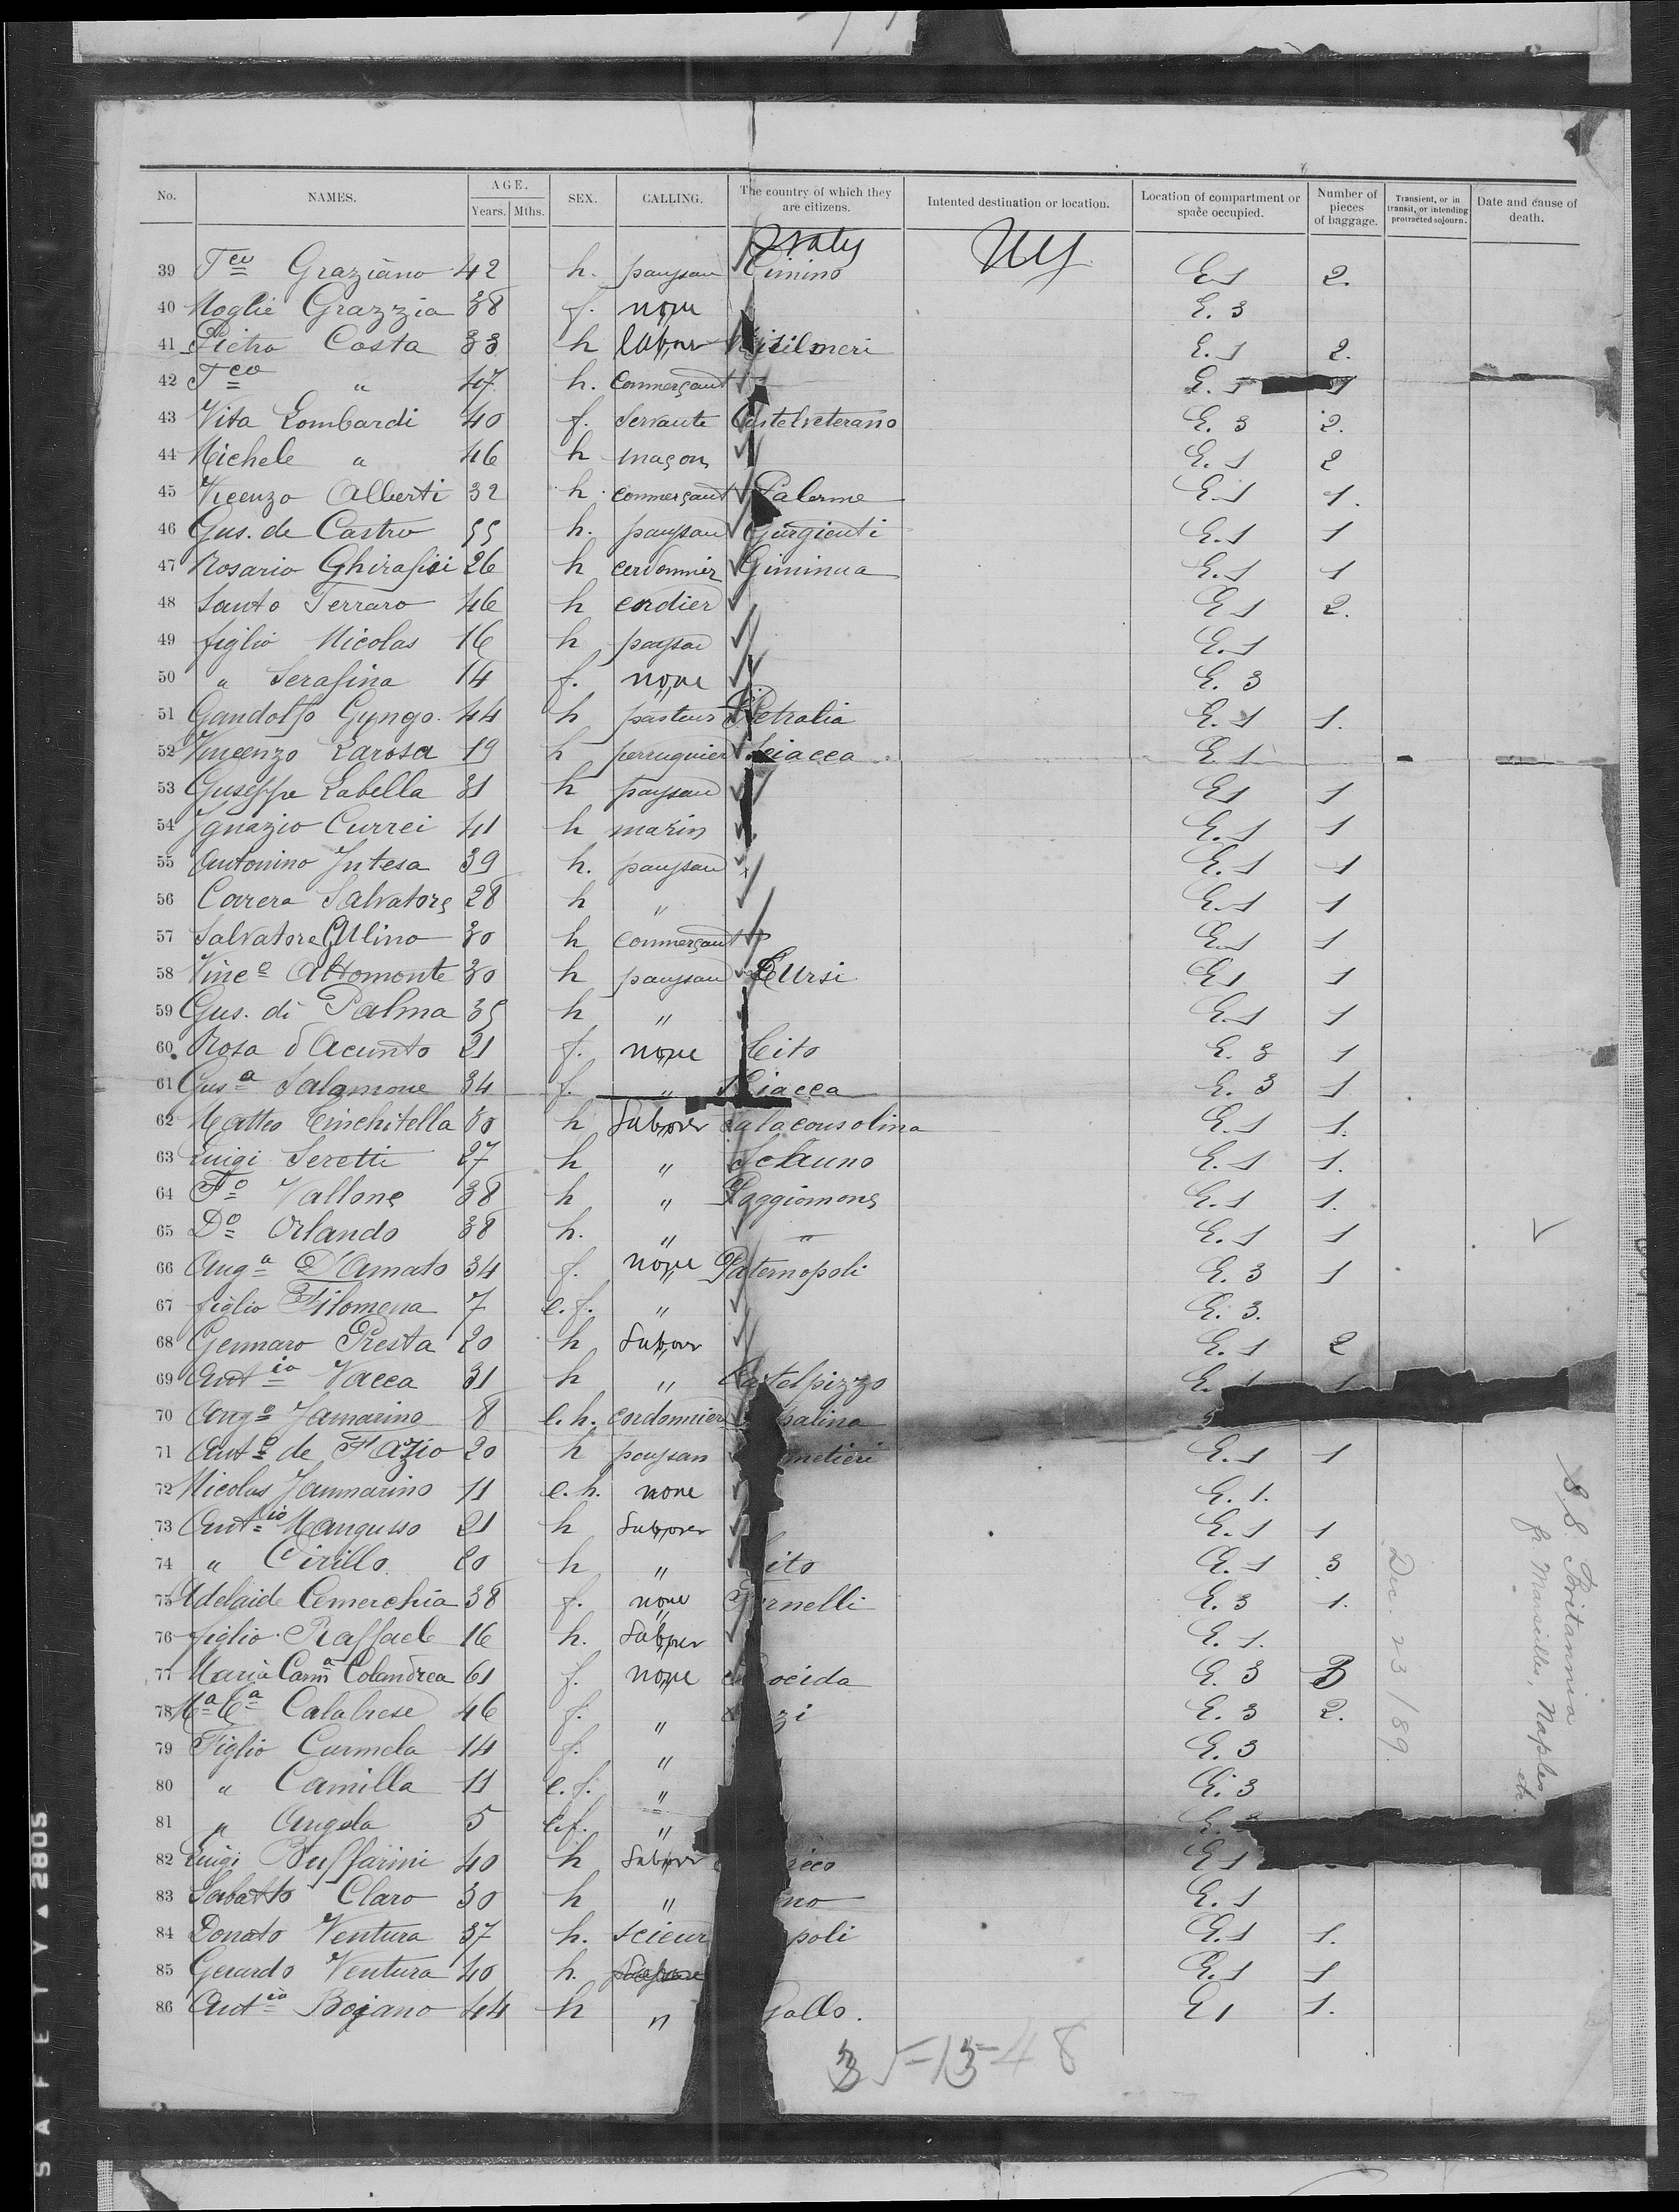 No. NAMES. AGE. Years. Mths. SEX. CALLING. The country of which they are citizens. Intented destination or location. Location of compartment or space occupied. Number of pieces of baggage. Transient, or in transit, or intending protracted sojourn. Date and cause of death.
Italy NY
39 Fco Graziano 42 h. paysan Cimino E 1 2.
40 Moglie Grazzia 38 f. none E. 3
41 Pietro Costa 33 h labour Misilmeri E. 1 2.
42 Fco " 47 h. Commerçant E. 1 1
43 Vita Lombardi 40 f. Servante Castelveterano E. 3 2.
44 Michele " 46 h maçon E. 1 2
45 Vicenzo Alberti 32 h commerçant Palerme E. 1 1.
46 Gus. de Castro 55 h. paysan Girgienti E. 1 1
47 Rosario Ghirafisi 26 h cerdonnier Giminna E. 1 1
48 Santo Ferraro 46 h cordier E 1 2.
49 figlio Nicolas 16 h paysan E. 1
50 " Serafina 14 f. none E. 3
51 Gandolfo Gyngo. 44 h pasteur Petralia E. 1 1.
52 Vincenzo Larosa 19 h perruquier Sciacca E. 1
53 Guseppe Labella 31 h paysan E 1 1
54 Ignazio Currei 41 h marin E. 1 1
55 Antonino Intesa 39 h. paysan E. 1 1
56 Carera Salvatore 28 h " E. 1 1
57 Salvatore Gulino 30 h commerçant E. 1 1
58 Vinco Altomonte 30 h paysan Lursi E 1 1
59 Gus. di Palma 35 h " E. 1 1
60 Rosa d'Acunto 21 f. none Cito E. 3 1
61 Gusa Salamone 34 f. " Sciacca E. 3 1
62 Matteo Cinchitella 30 h Laborer Salaconsolina E. 1 1.
63 Luigi Seretti 27 h " E. 1 1.
64 Fo Vallone 38 h " Poggiomone E. 1 1.
65 Do Orlando 38 h. " " E. 1 1
66 Anga D'Amato 34 f. none Paternopoli E. 3 1
67 figlio Filomena 7 e. f. " E. 3.
68 Gennaro Presta 20 h Laborer E. 1 2
69 Antio Vacca 31 h " Castelpizzo E. 1
70 Ango Jamarino 8 e. h. cordonnier salina
71 Anto de Fazio 20 h paysan metieri E. 1 1
72 Nicolas Jammarino 11 e. h. none E. 1.
73 Antio Mangusso 21 h Laborer E. 1 1
74 " Cirillo 20 h " ito E. 1 3
75 Adelaide Cemerchia 38 f. none rnelli E. 3 1.
76 figlio Raffaele 16 h. Laborer E. 1.
77 Maria Carma Colandrea 61 f. none ocida E. 3 B
78 Ma Ca Calabrese 46 f. " zi E. 3 2.
79 Figlio Carmela 14 f. " E. 3
80 " Camilla 11 e. f. " E. 3
81 " Angela 5 e. f. " E. 3
82 Luigi Buffarini 40 h Laborer ico E 1
83 Sabatto Claro 30 h " no E. 1
84 Donato Ventura 37 h. scieur poli E. 1 1.
85 Gerardo Ventura 40 h. E. 1 1
86 Antio Bojano 44 h " Gallo. E 1 1.
S.S. Britannia
fr Marseilles, Naples etc
Dec. 23/89.
35-13-48
SAFETY ▲ 2805